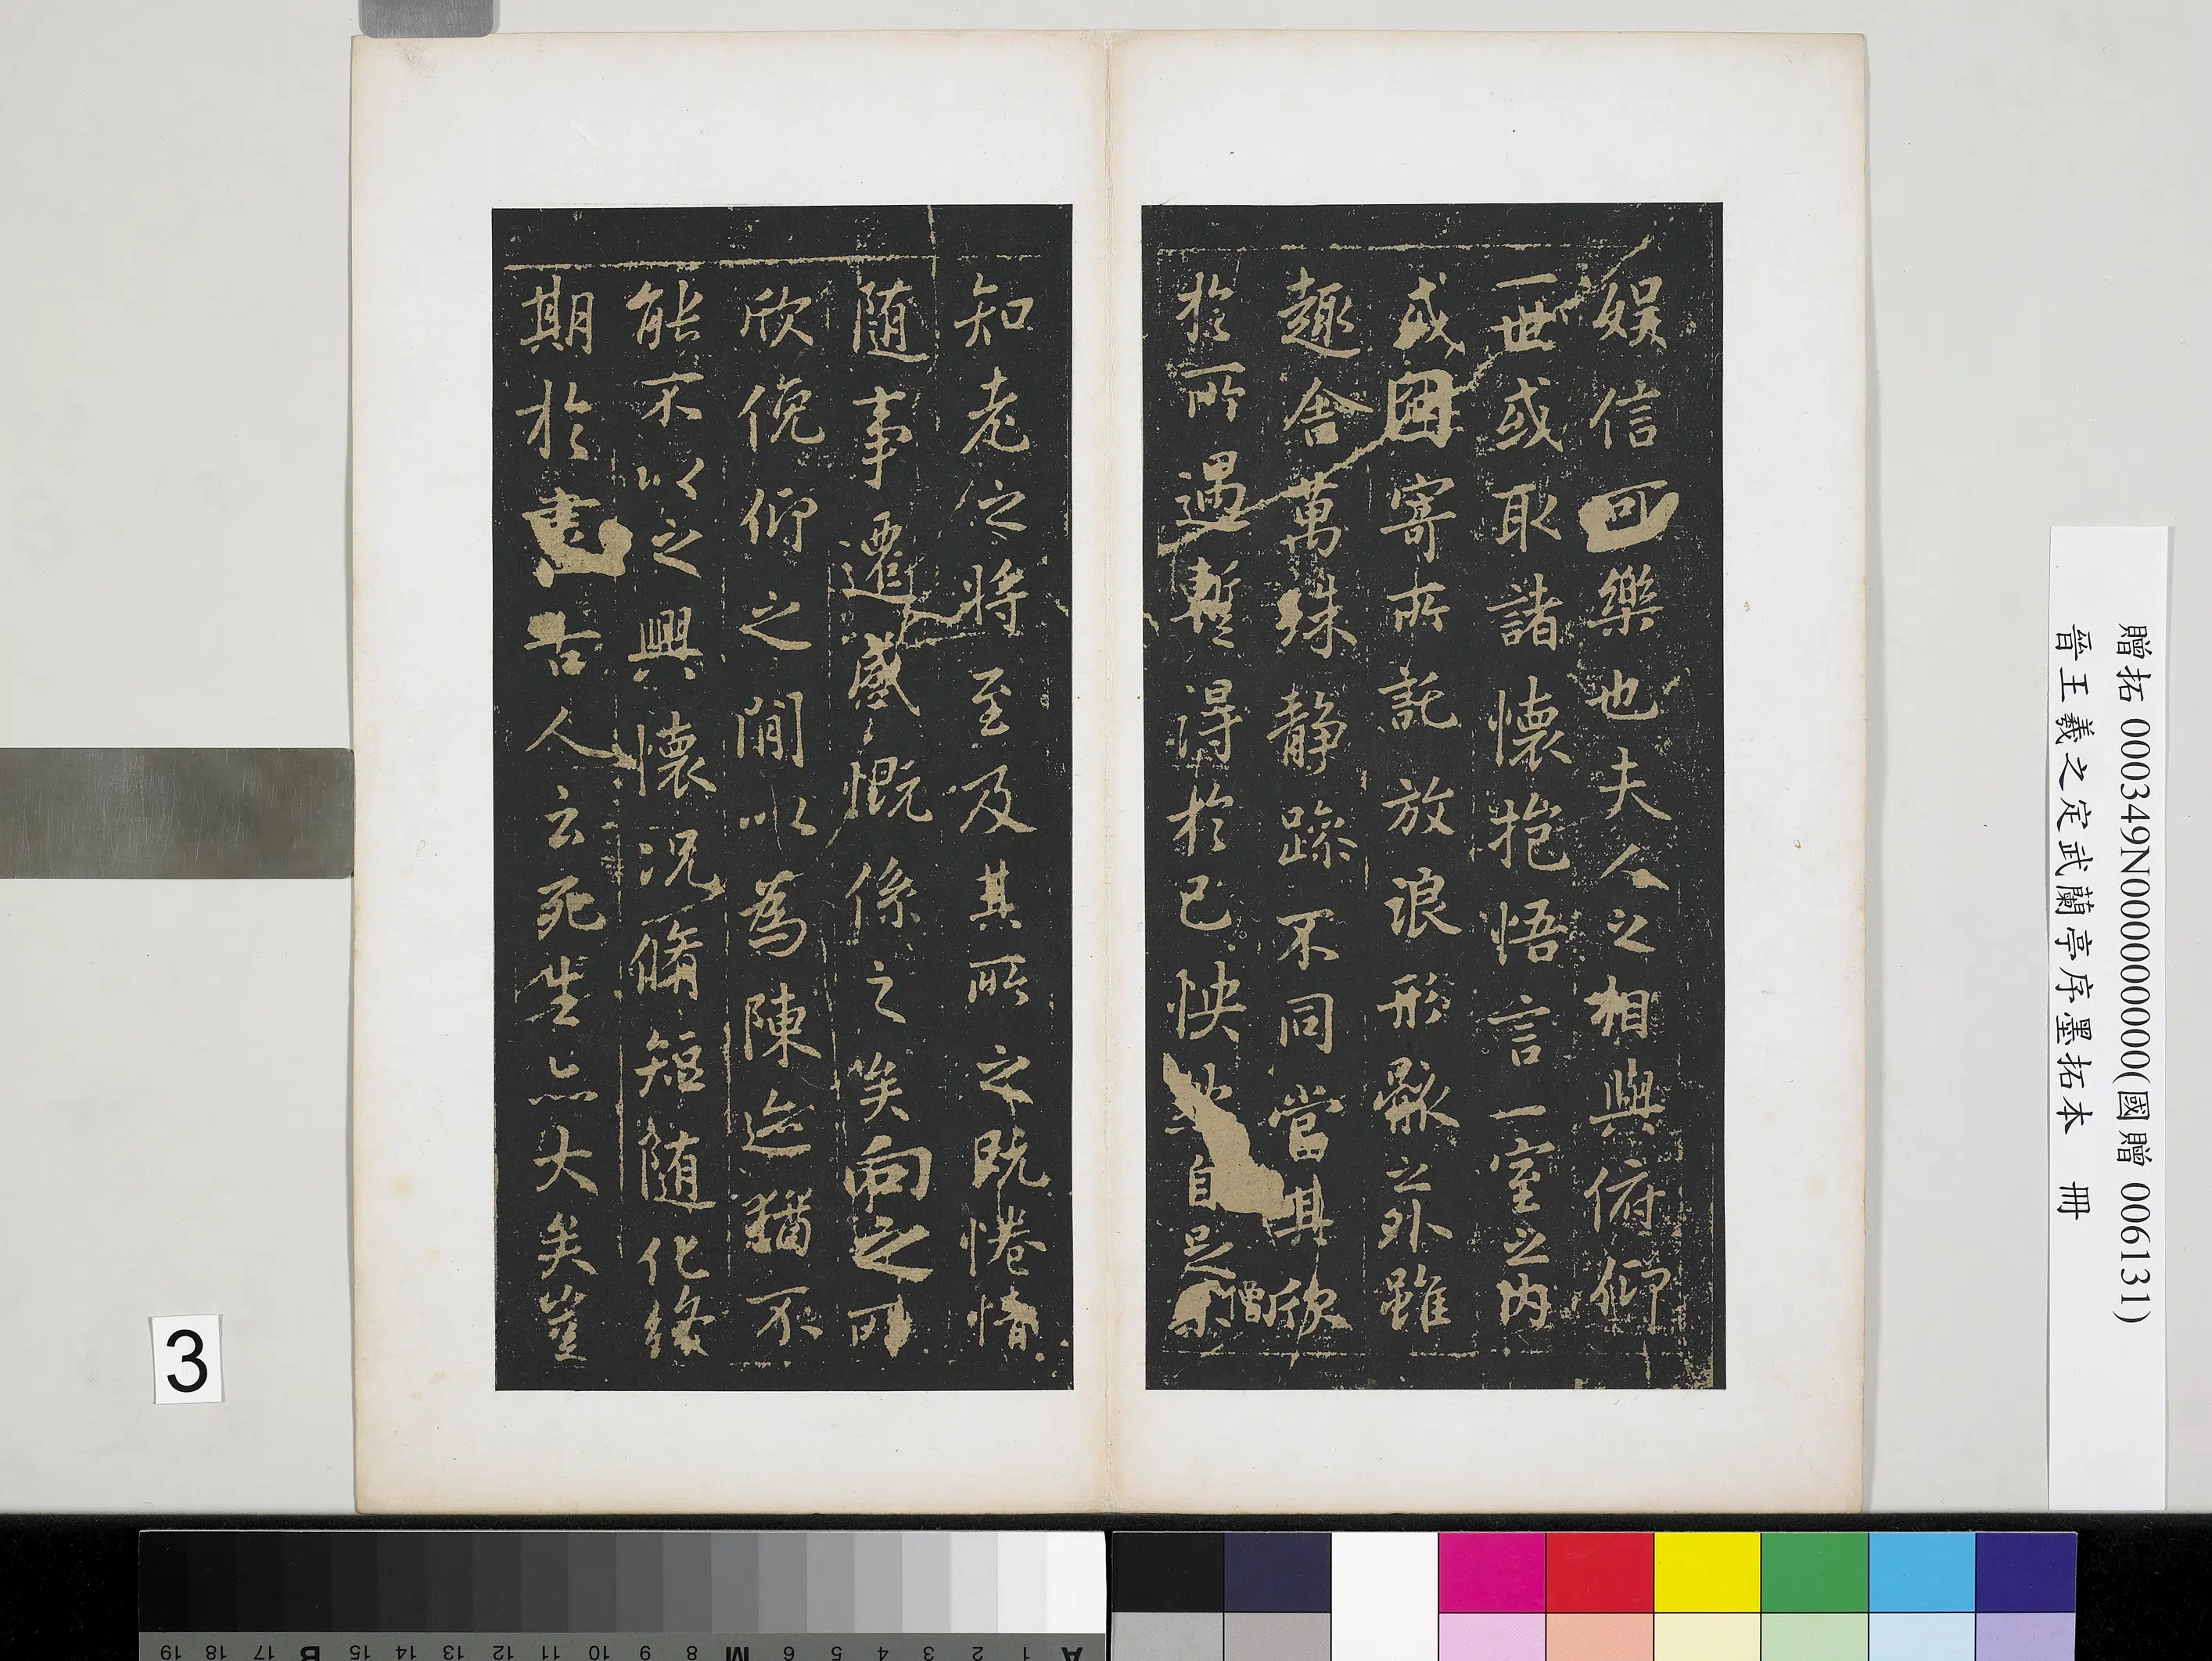 娛信可樂也夫人之相與俯仰
一世或取諸懷抱悟言一室之內
或因寄所託放浪形骸之外雖
趣舍萬殊靜躁不同當其欣
僧
於所遇暫得於己怏然自足不
知老之將至及其所之既惓情
随事遷感慨係之矣向之所
欣俛仰之間以為陳迹猶不
能不以之興懷況脩短随化終
期於盡古人云死生亦大矣豈
贈拓 000349N000000000(國贈 006131)
晉王羲之定武蘭亭序墨拓本 冊
3
19 18 17 B 15 14 13 12 11 10 9 8 M 6 5 4 3 2 1 A